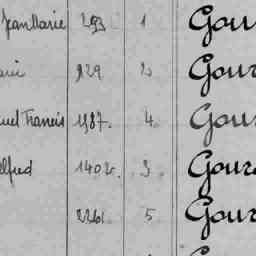 Jean Marie 293 1 Gour
929 2 Gour
uel Francis 1987. 4. Gour
lfred 1402. 3. Gour
2261. 5 Gour